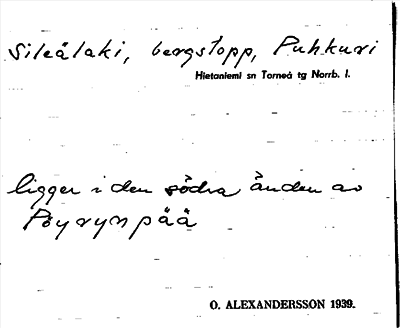 Sileälaki, bergstopp, Puhkuri
Hietaniemi sn Torneå tg Norrb. l.
ligger i den södra änden av
Pöyrynpää
O. ALEXANDERSSON 1939.